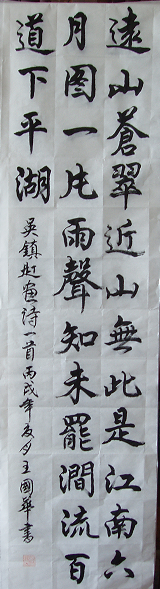 遠山蒼翠近山無此是江南六
月圖一片雨聲知未罷澗流百
道下平湖
吳鎮題畫詩一首丙戌年夏月王國華書